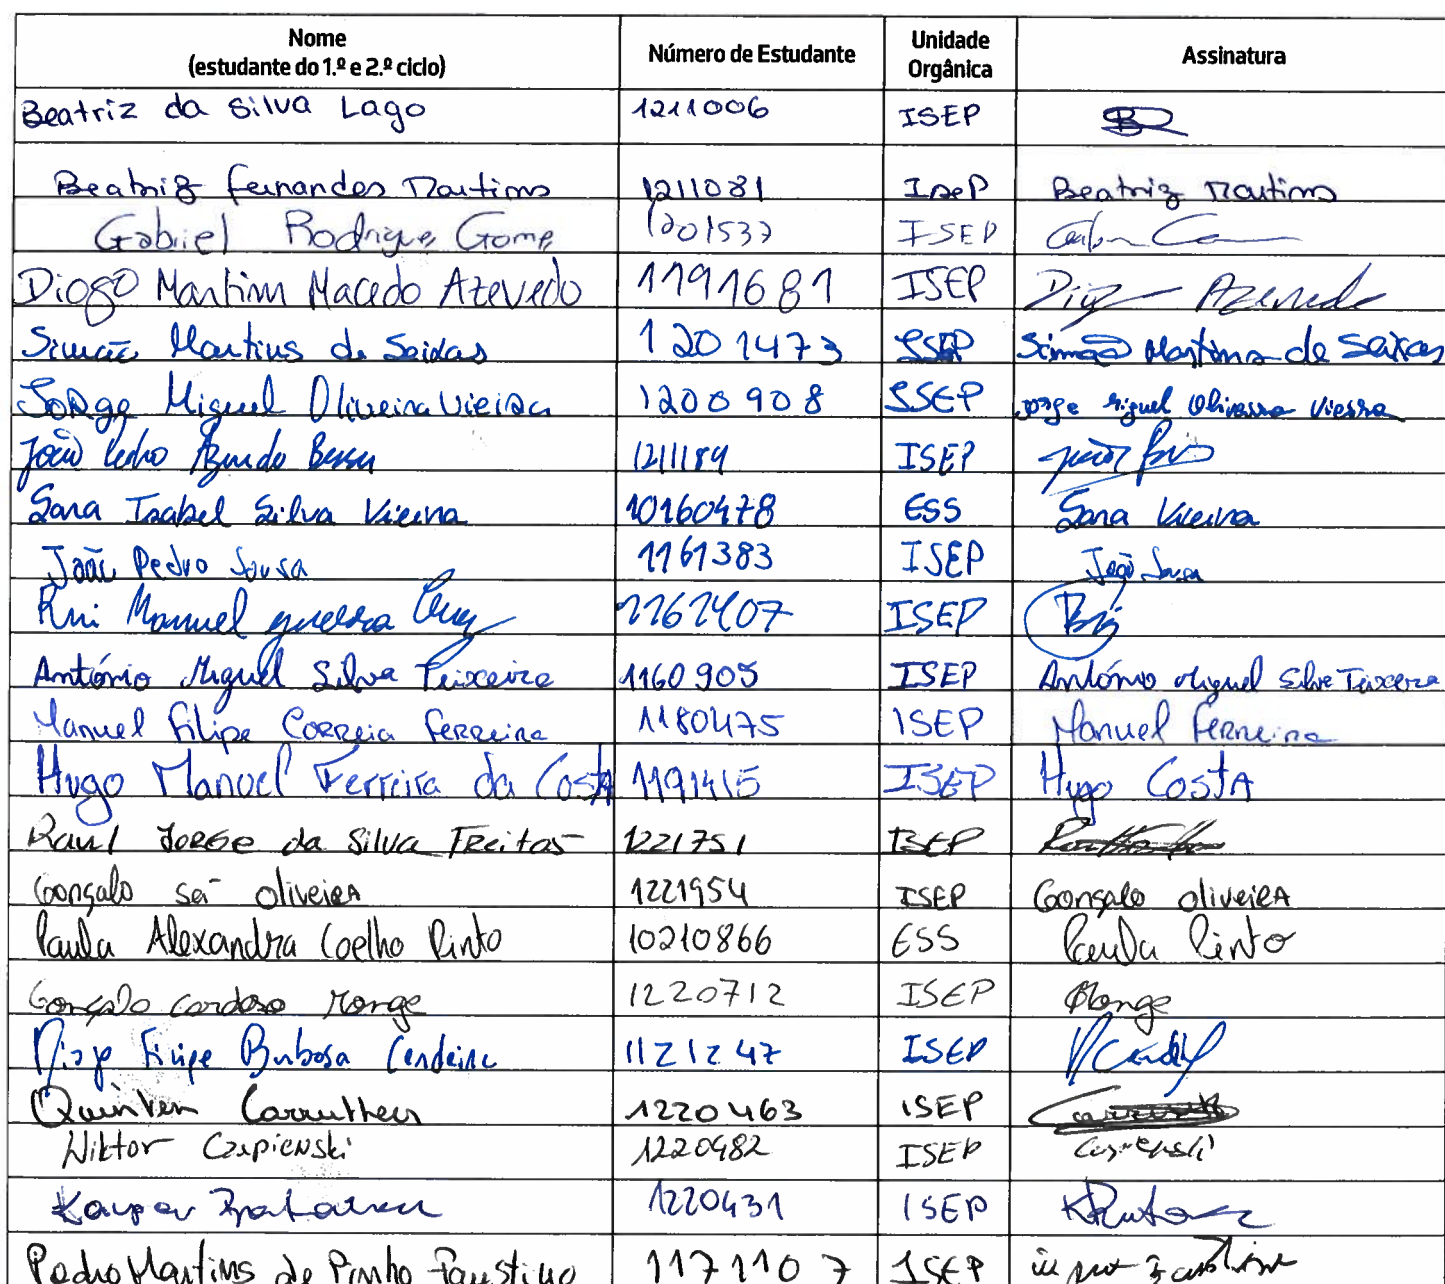 Nome (estudante do 1.º e 2.º ciclo) Número de Estudante Unidade Orgânica Assinatura
Beatriz da Silva Lago 1211006 ISEP
Beatriz Fernandes Martins 1211081 ISEP Beatriz Martins
Gabriel Rodrigues Gomes 1201537 ISEP
Diogo Martim Macedo Azevedo 1191681 ISEP Diogo Azevedo
Simão Martins de Seixas 1201473 ISEP Simão Martins de Seixas
Jorge Miguel Oliveira Vieira 1200908 ISEP Jorge Miguel Oliveira Vieira
João Pedro 1211189 ISEP
Sara Isabel Silva Vieira 10160478 ESS Sara Vieira
João Pedro Sousa 1161383 ISEP João Sousa
Rui Manuel ISEP
António Miguel Silva Teixeira 1160905 ISEP António Miguel Silva Teixeira
Manuel Filipe Correia Ferreira 1180475 ISEP Manuel Ferreira
Hugo Manuel Ferreira da Costa 1191415 ISEP Hugo Costa
Raul Jorge da Silva Freitas 1221751 ISEP
Gonçalo Sá Oliveira 1221954 ISEP Gonçalo Oliveira
Paula Alexandra Coelho Pinto 10210866 ESS Paula Pinto
Gonçalo Cardoso Monge 1220712 ISEP Monge
Filipe Barbosa 1121247 ISEP
Quinten Carruthers 1220463 ISEP
Wiktor Czapienski 1220482 ISEP
1220431 ISEP
Pedro Martins de Pinho Faustino 1171107 ISEP